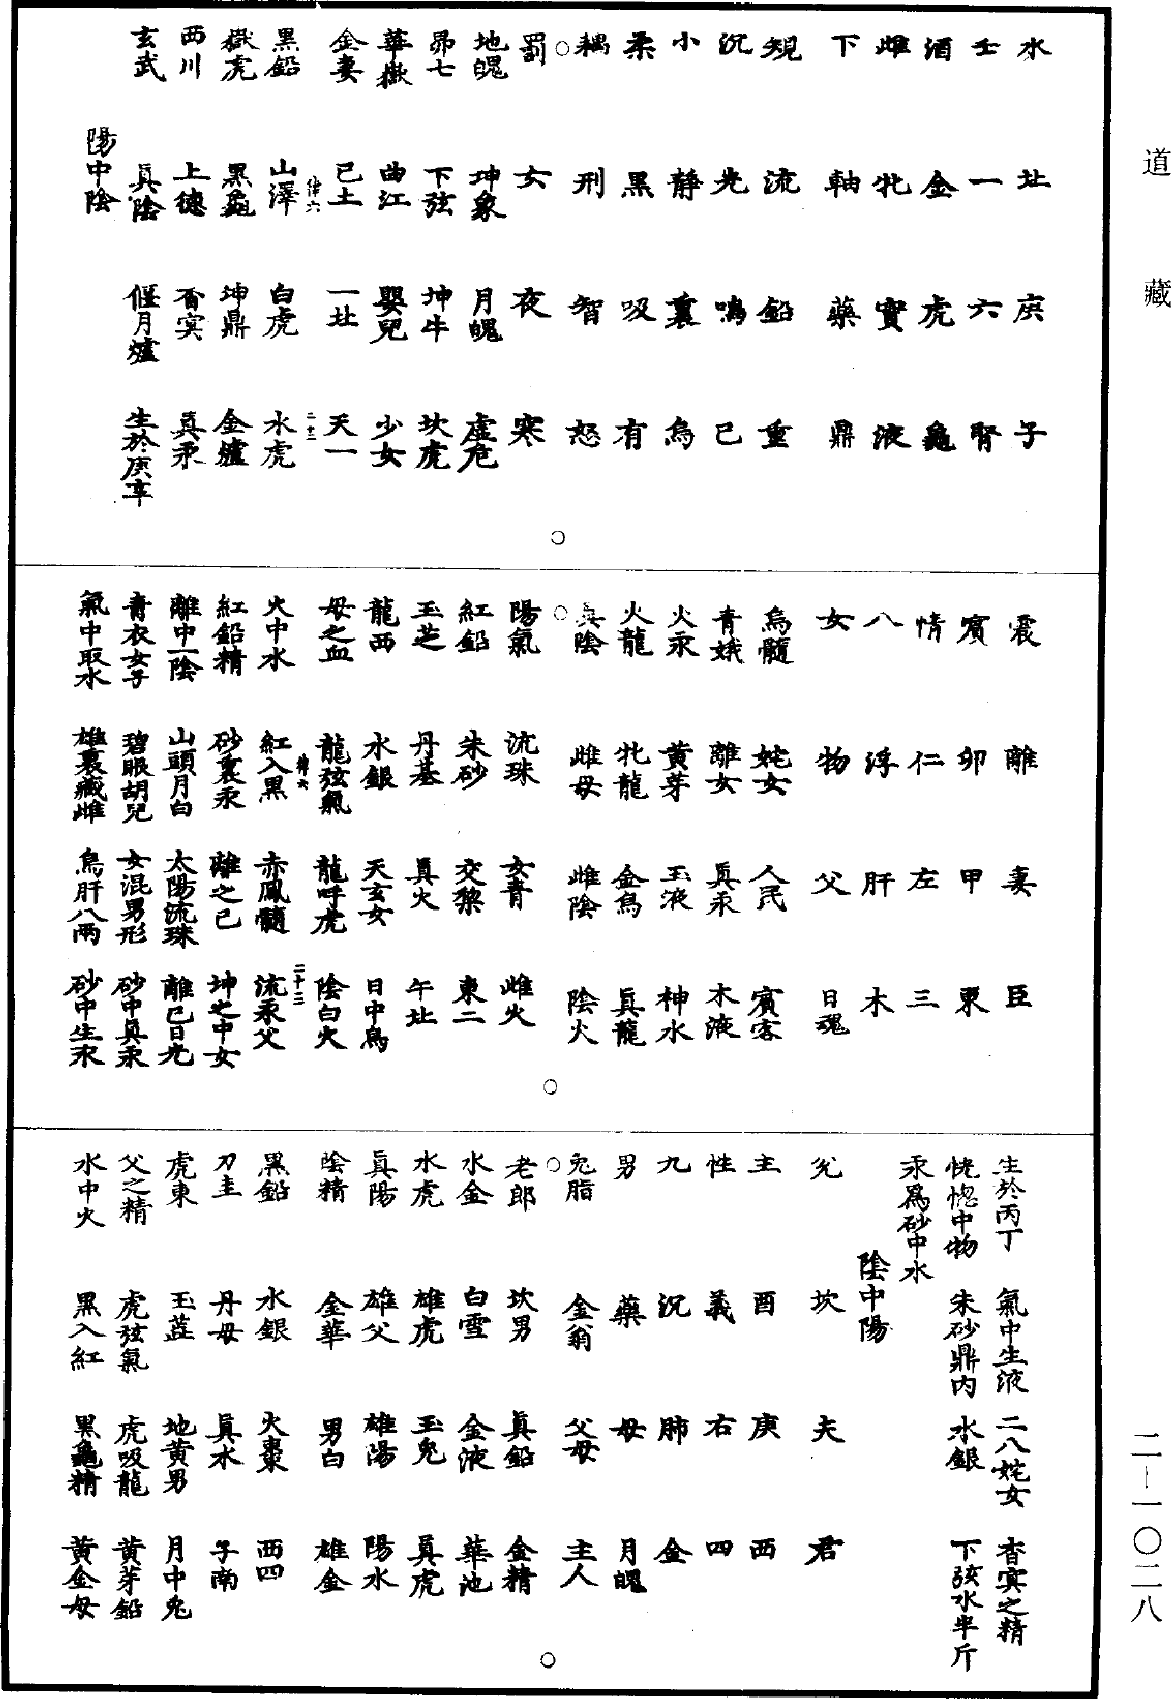 道藏
水 北 庚 子
壬 一 六 腎
酒 金 虎 龜
雌 牝 實 液
下 軸 藥 鼎
規 流 鉛 重
沉 光 鳴 己
小 靜 裏 烏
柔 黑 吸 有
耦 刑 智 怒
罰 女 夜 寒
地魄 坤象 月魄 虛危
昴七 下弦 坤牛 坎虎
華嶽 曲江 嬰兒 少女
金妻 己土 一北 天一
律六 二十二
黑鉛 山澤 白虎 水虎
嶽虎 黑龜 坤鼎 金爐
西川 上德 杳冥 真汞
玄武 真陰 偃月爐 生於庚辛
陽中陰
震 離 妻 臣
賓 卯 甲 東
情 仁 左 三
八 浮 肝 木
女 物 父 日魂
烏髓 姹女 人民 賓客
青娥 離女 真汞 木液
火汞 黃芽 玉液 神水
火龍 牝龍 金烏 真龍
真陰 雌母 雌陰 陰火
陽氣 流珠 女青 雌火
紅鉛 朱砂 交梨 東二
玉芝 丹基 真火 午北
龍西 水銀 天玄女 日中烏
母之血 龍弦氣 龍呼虎 陰白火
律六 二十三
火中水 紅入黑 赤鳳髓 流汞父
紅鉛精 砂裏汞 離之己 坤之中女
離中一陰 山頭月白 太陽流珠 離己日光
青衣女子 碧眼胡兒 女混男形 砂中真汞
氣中取水 雄裏藏雌 烏肝八兩 砂中生汞
生於丙丁 氣中生液 二八姹女 杳冥之精
恍惚中物 朱砂鼎內 水銀 下弦水半斤
汞爲砂中水
陰中陽
兌 坎 夫 君
主 酉 庚 西
性 義 右 四
九 沉 肺 金
男 藥 母 月魄
兔脂 金翁 父母 主人
老郎 坎男 真鉛 金精
水金 白雪 金液 華池
水虎 雄虎 玉兔 真虎
真陽 雄父 雄陽 陽水
陰精 金華 男白 雄金
黑鉛 水銀 火棗 西四
刀圭 丹母 真水 子南
虎東 玉蕋 地黃男 月中兔
父之精 虎弦氣 虎吸龍 黃芽鉛
水中火 黑入紅 黑龜精 黃金母
二-一〇二八